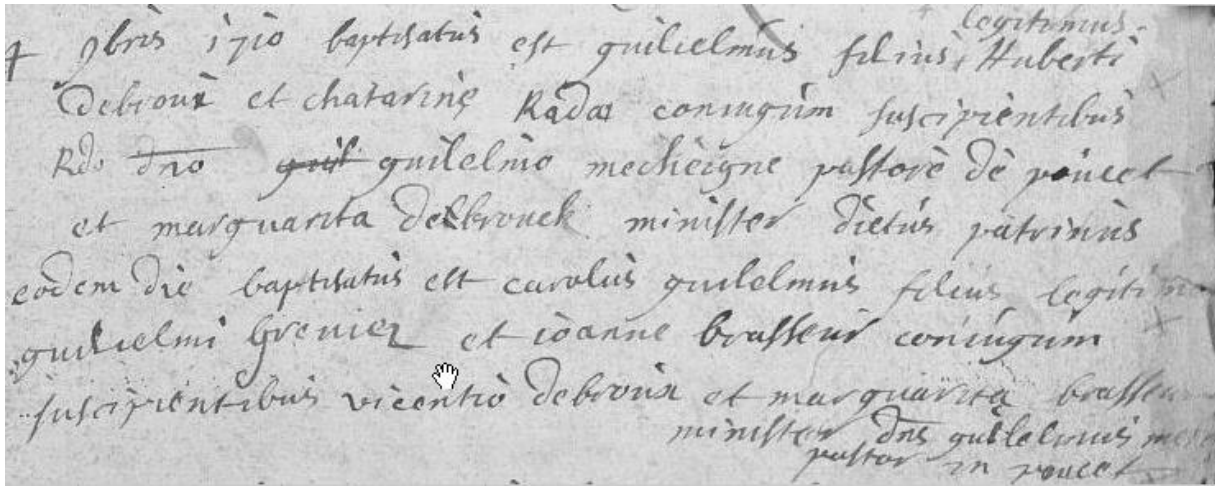 legitimus
4 9bris 1710 baptisatus est guilielmus filius Huberti
debroux et chatarinę Radoa coniugum suscipientibus
Rdo dno guil guilelmo mecheigne pastore de poucet
et marguarita delbrouck minister dictus patrinus
eodem die baptisatus est carolus guilelmus filius legiti
guilielmi Grenier et ioanne brasseur coniugum
suscipientibus vicentio debroux et marguarita brasseu
minister dns guilelmus me
pastor in poucet